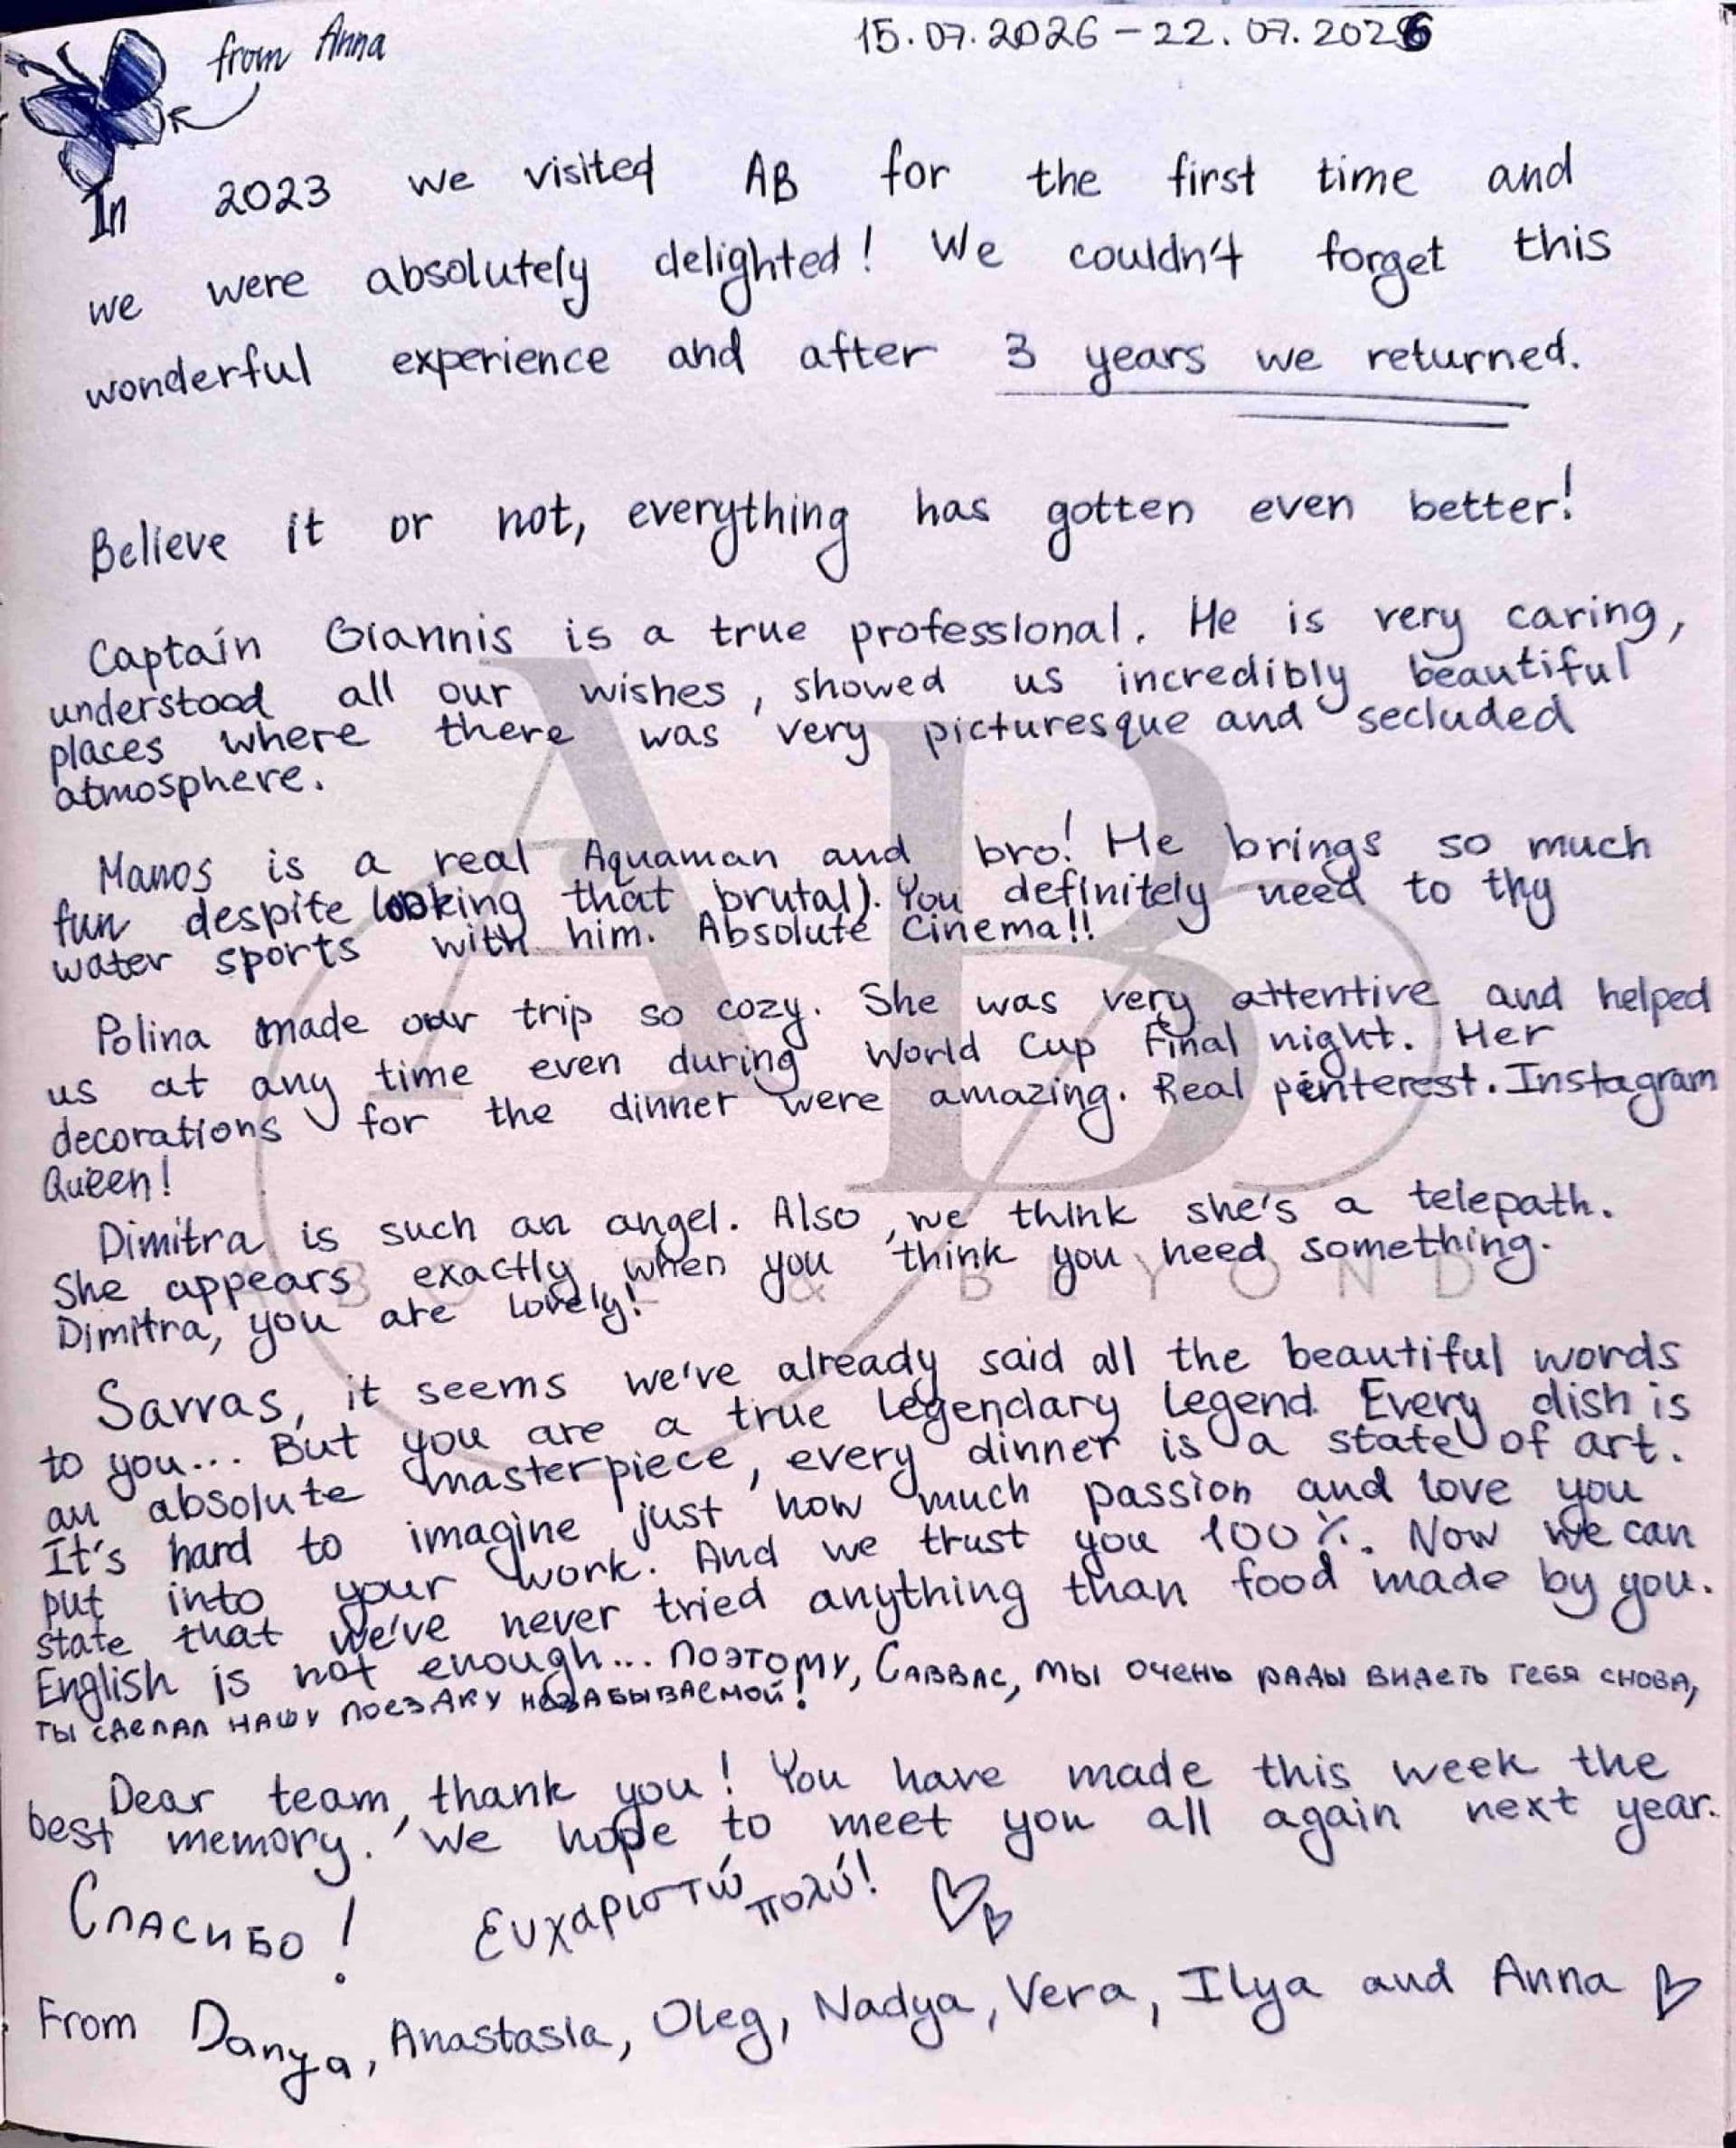 from Anna
15.07.2026 – 22.07.2026
In 2023 we visited AB for the first time and
we were absolutely delighted! We couldn't forget this
wonderful experience and after 3 years we returned.
Believe it or not, everything has gotten even better!
Captain Giannis is a true professional. He is very caring,
understood all our wishes, showed us incredibly beautiful
places where there was very picturesque and secluded
atmosphere.
Manos is a real Aquaman and bro! He brings so much
fun despite looking that brutal). You definitely need to thy
water sports with him. Absolute Cinema!!
Polina made our trip so cozy. She was very attentive and helped
us at any time even during World Cup Final night. Her
decorations for the dinner were amazing. Real pinterest. Instagram
Queen!
Dimitra is such an angel. Also, we think she's a telepath.
She appears exactly when you think you need something.
Dimitra, you are lovely!
Savvas, it seems we've already said all the beautiful words
to you... But you are a true legendary legend. Every dish is
an absolute masterpiece, every dinner is a state of art.
It's hard to imagine just how much passion and love you
put into your work. And we trust you 100%. Now we can
state that we've never tried anything than food made by you.
English is not enough... Поэтому, Саввас, мы очень рады видеть тебя снова,
ты сделал нашу поездку незабываемой!
Dear team, thank you! You have made this week the
best memory. We hope to meet you all again next year.
Спасибо! Ευχαριστώ πολύ!
From Danya, Anastasia, Oleg, Nadya, Vera, Ilya and Anna
AB
& BEYOND